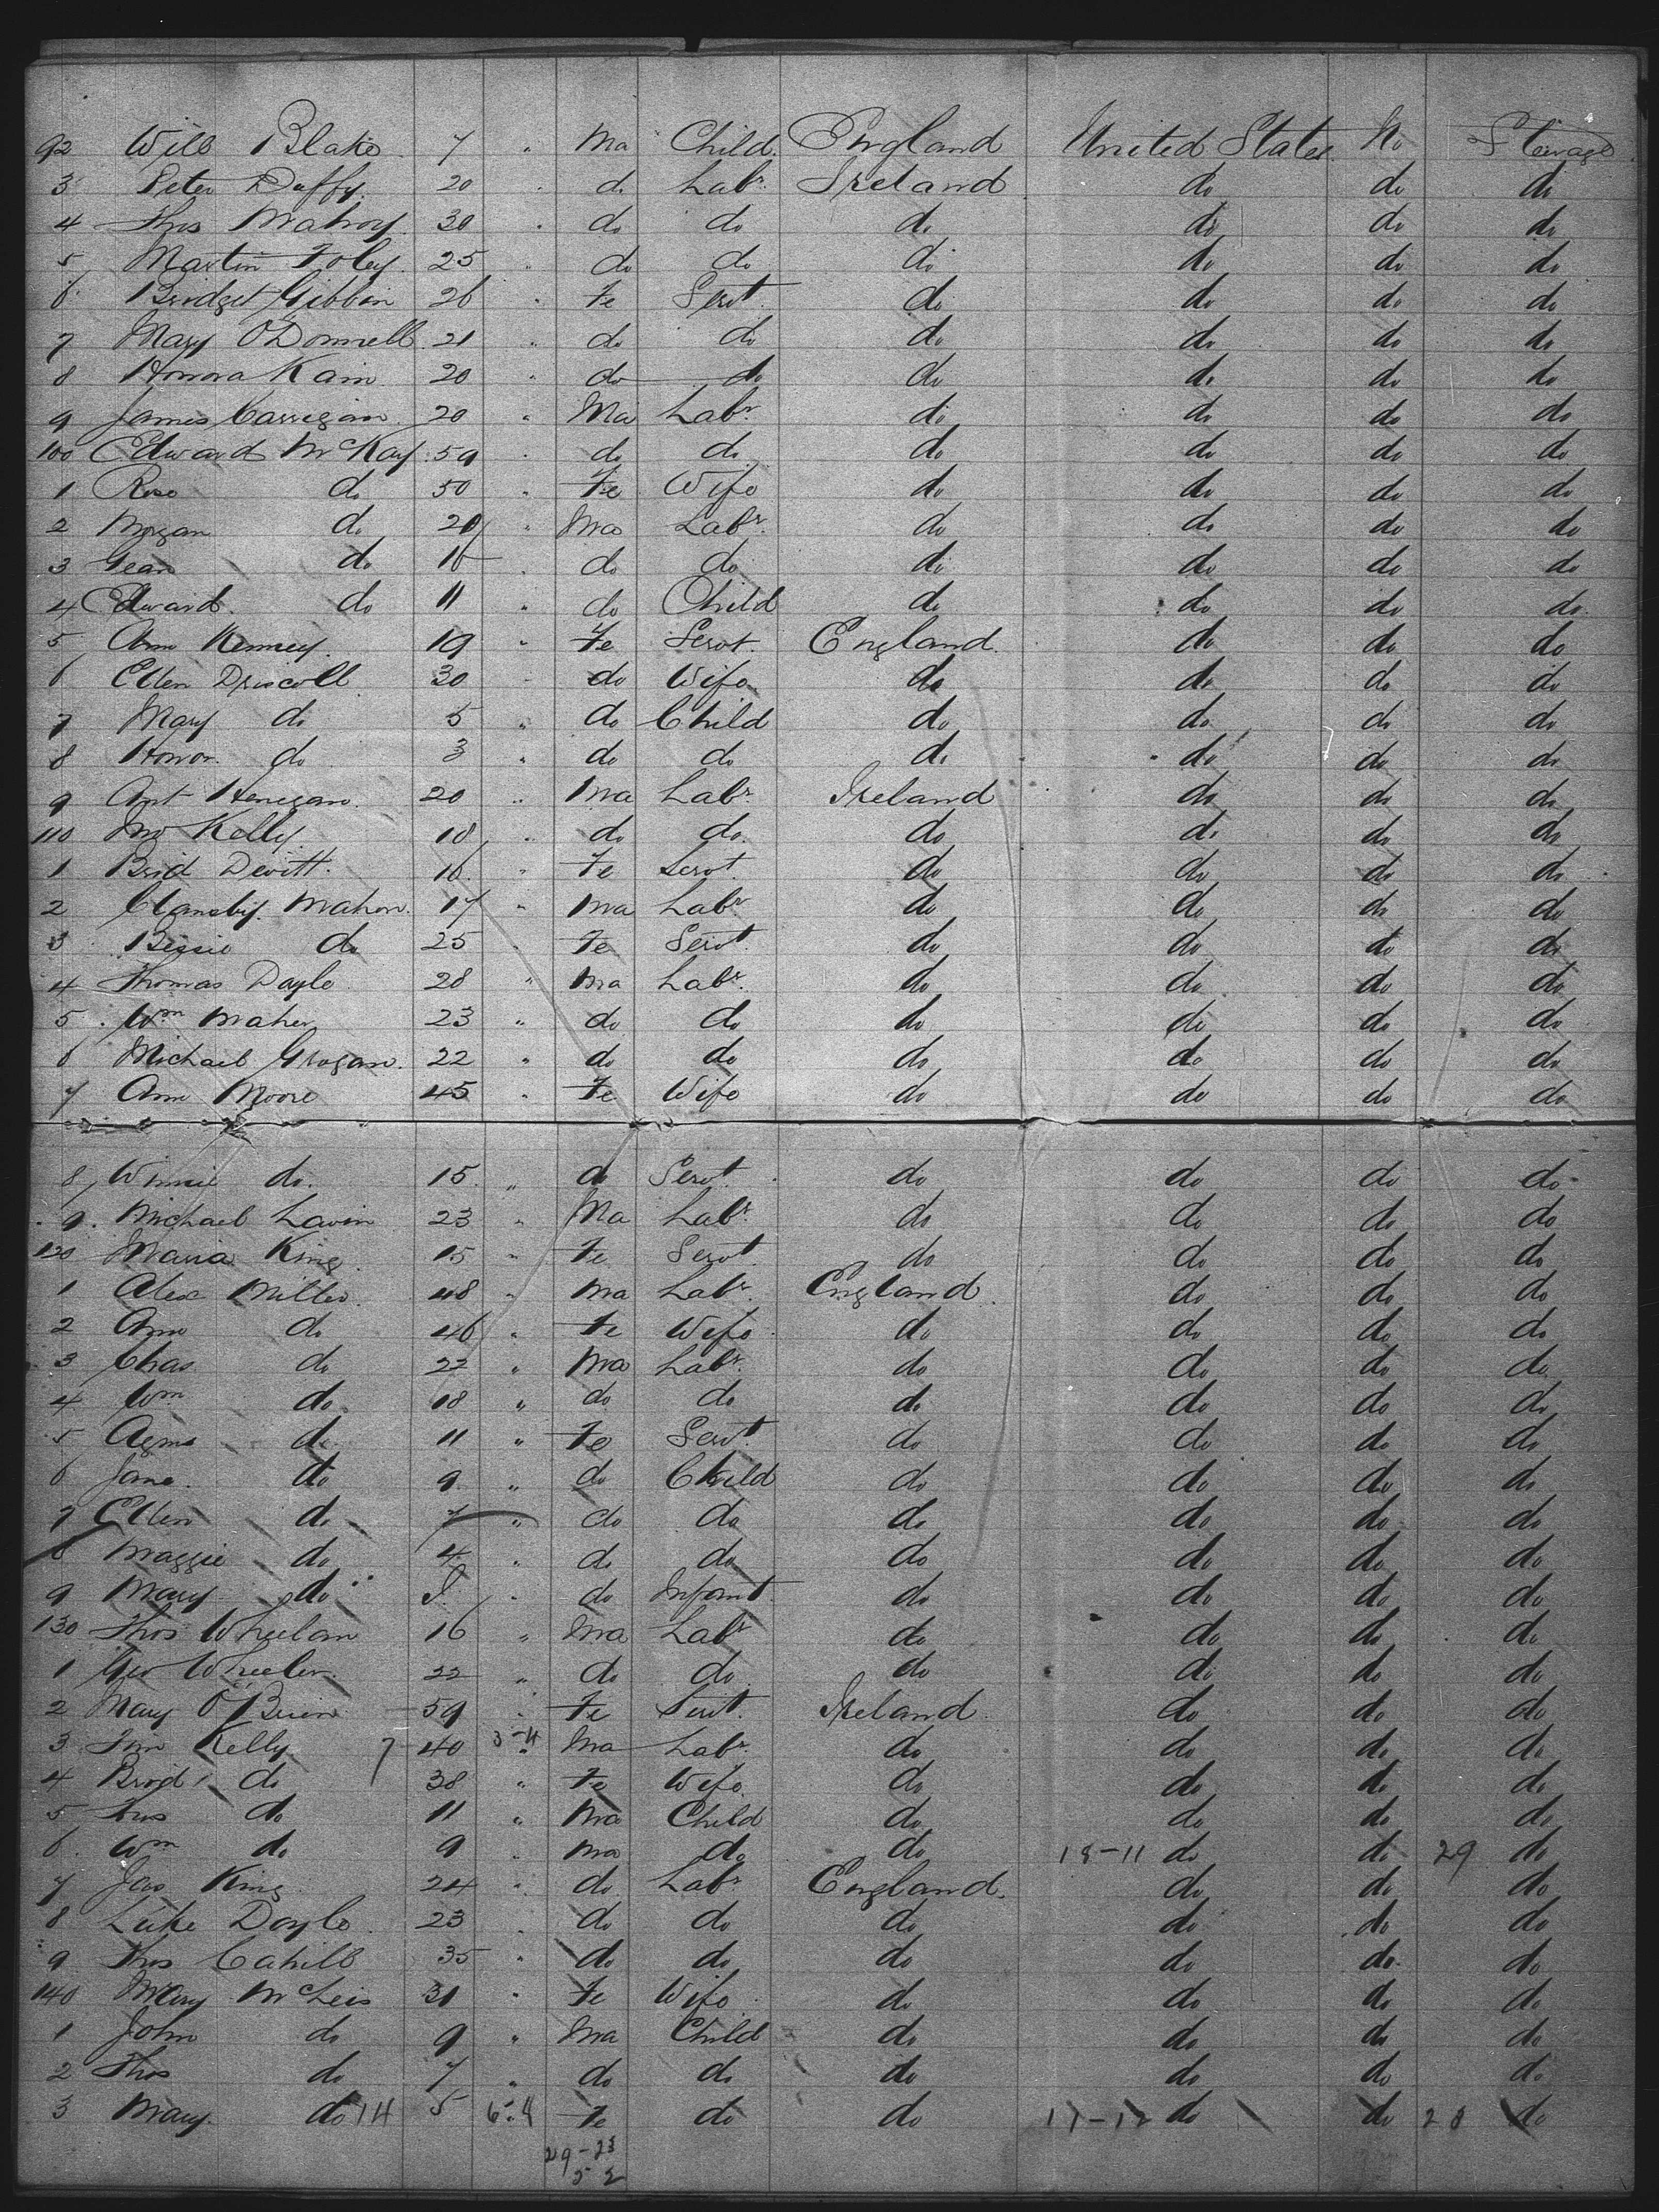 92 Will Blake 7 " Ma Child England United States No Steerage
3 Peter Duffy 20 " do Labr Ireland do do do
4 Thos Mabroy 30 " do do do do do do
5 Martin Foley 25 " do do do do do do
6 Bridget Gibbin 26 " Fe Servt do do do do
7 Mary O'Donnell 21 " do do do do do do
8 Honora Kain 20 " do do do do do do
9 James Carrigan 20 " Ma Labr do do do do
100 Edward McKay 59 " do do do do do do
1 Rose do 50 " Fe Wife do do do do
2 Morgan do 20 " Ma Labr do do do do
3 Gean do 16 " do do do do do do
4 Edward do 11 " do Child do do do do
5 Ann Kenney 19 " Fe Servt England do do do
6 Ellen Driscoll 30 " do Wife do do do do
7 Mary do 5 " do Child do do do do
8 Honor do 3 " do do do do do do
9 Ant Henegan 20 " Ma Labr Ireland do do do
110 Jno Kelly 18 " do do do do do do
1 Brid Devitt 16 " Fe Servt do do do do
2 Mahon 17 " Ma Labr do do do do
3 Bessie do 25 " Fe Servt do do do do
4 Thomas Dayle 28 " Ma Labr do do do do
5 Wm Maher 23 " do do do do do do
6 Michael Grogan 22 " do do do do do do
7 Ann Moore 45 " Fe Wife do do do do
8 Winnie do 15 " do Servt do do do do
9 Michael Lavin 23 " Ma Labr do do do do
120 Maria King 15 " Fe Servt do do do do
1 Alex Miller 48 " Ma Labr England do do do
2 Ann do 46 " Fe Wife do do do do
3 Chas do 22 " Ma Labr do do do do
4 Wm do 18 " do do do do do do
5 Agns do 11 " Fe Servt do do do do
6 Jane do 9 " do Child do do do do
7 Ellen do 7 " do do do do do do
8 Maggie do 4 " do do do do do do
9 Mary do " do Infant do do do do
130 Thos Wheelan 16 " Ma Labr do do do do
1 Geo Wheeler 22 " do do do do do do
2 Mary O'Brien 59 " Fe Servt Ireland do do do
3 Tim Kelly 7 40 3-4 " Ma Labr do do do do
4 Brigd do 38 " Fe Wife do do do do
5 Thos do 11 " Ma Child do do do do
6 Wm do 9 " Ma do do 18-11 do do 29 do
7 Jas King 24 " do Labr England do do do
8 Luke Doyle 23 " do do do do do do
9 Thos Cahill 35 " do do do do do do
140 Mary McLeis 31 " Fe Wife do do do do
1 John do 9 " Ma Child do do do do
2 Thos do 7 " do do do do do do
3 Mary do 14 5 6-4 Fe do do 17-12 do do 28 do
29-23
5 2